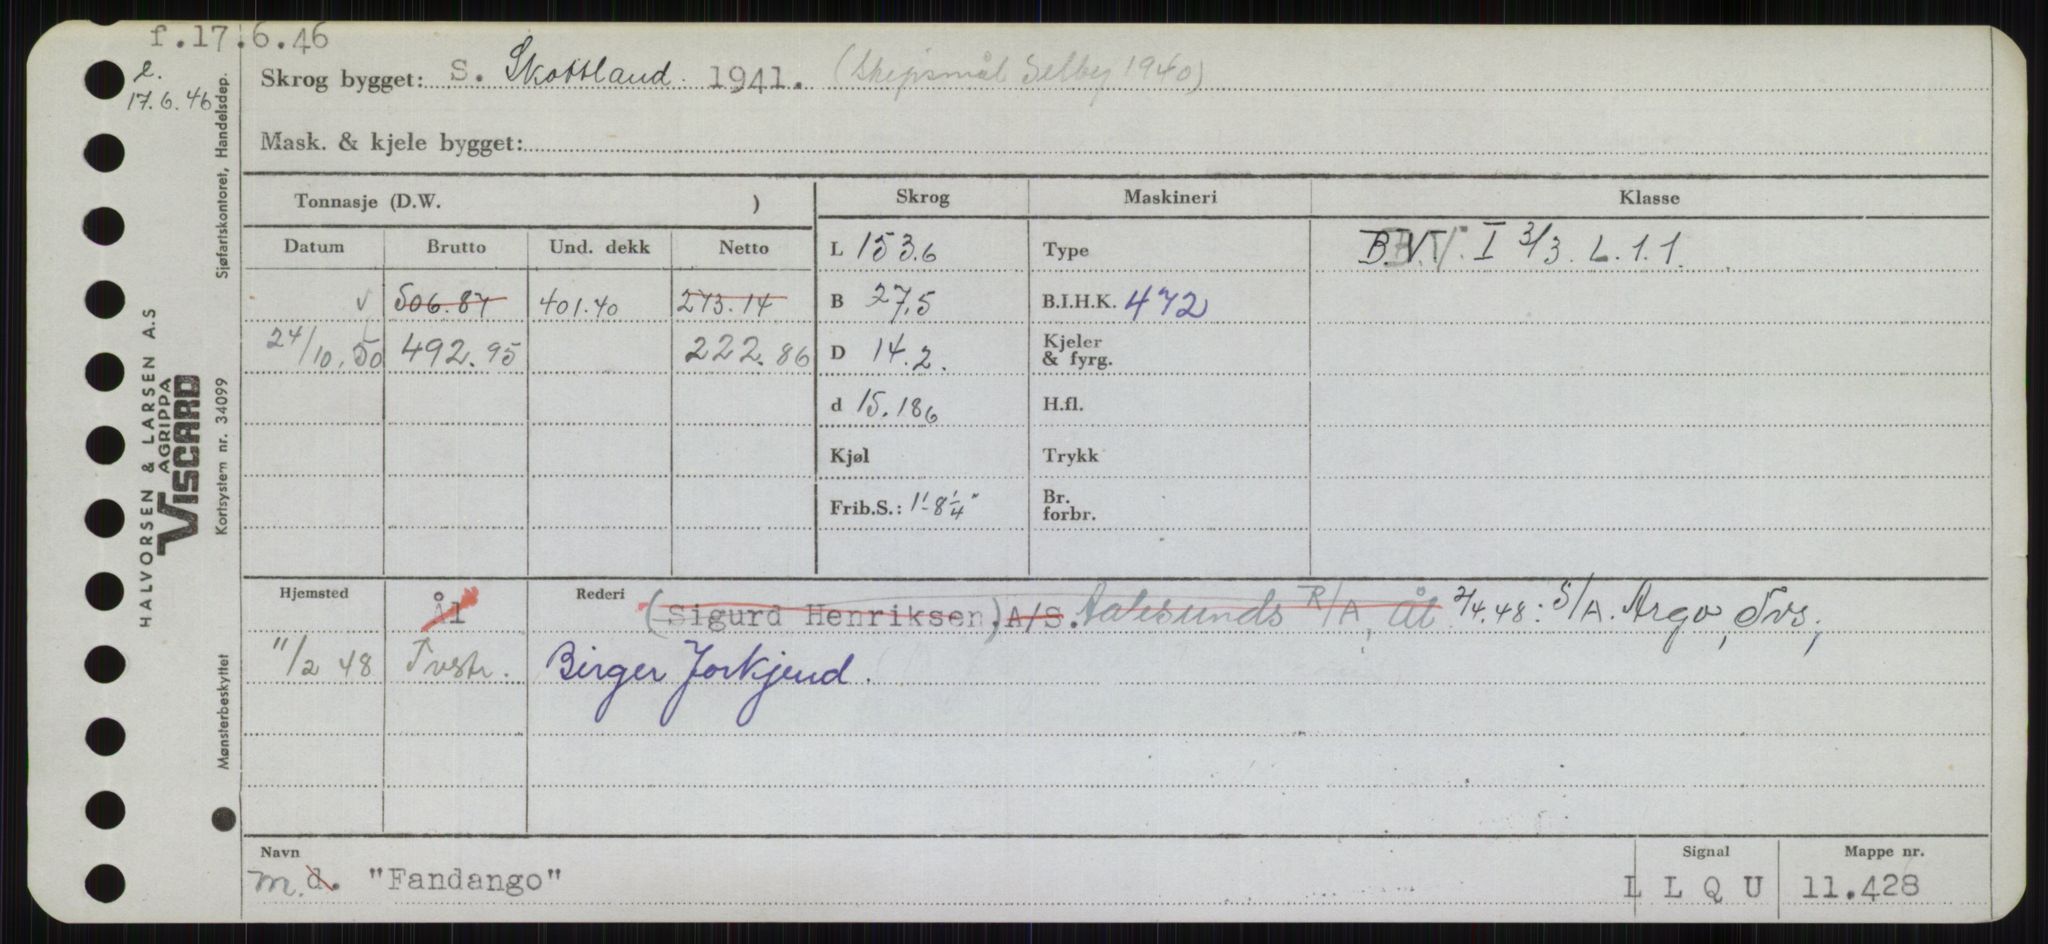 f.17.6.46
e.
17.6.46
Skrog bygget: S. Skottland. 1941. (Skipsmål Selby 1940)
Mask. & kjele bygget:
Tonnasje (D.W. ) Skrog Maskineri Klasse
Datum Brutto Und. dekk Netto L 153.6 Type B.V. I 3/3. L. 1. 1.
√ 506.87 401.40 273.14 B 27,5 B.I.H.K. 472
24/10.50 492.95 222.86 D 14.2. Kjeler
& fyrg.
d 15.186 H.fl.
Kjøl Trykk
Frib.S.: 1'-8¼" Br.
forbr.
Hjemsted Ål Rederi (Sigurd Henriksen.) A/S. Aalesunds R/A, Ål 2/4.48: S/A. Argo, Tvs.,
11/2 48 Tvstr. Birger Jorkjend.
Navn Signal Mappe nr.
m. d. "Fandango" L L Q U 11.428
Sjøfartskontoret, Handelsdep.
HALVORSEN & LARSEN A.S
AGRIPPA
VISCARD
Kortsystem nr. 34099
Mønsterbeskyttet